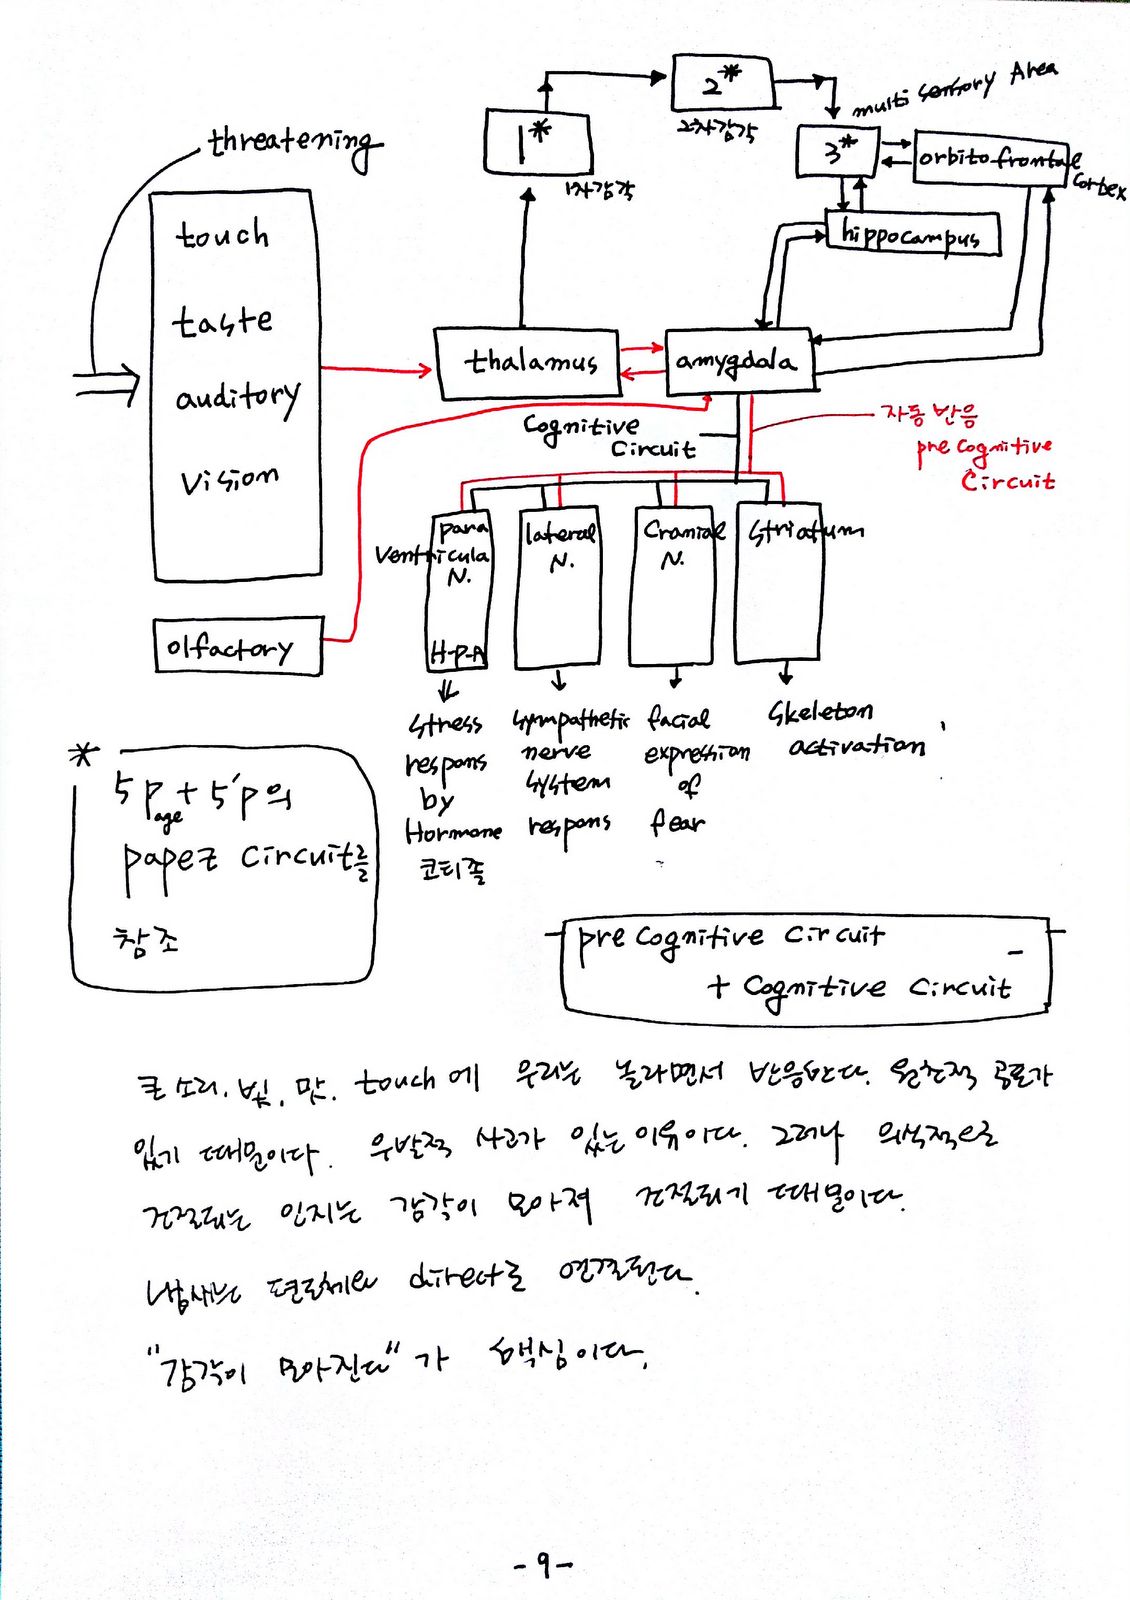 threatening
touch
taste
auditory
Vision
olfactory
1*
1차감각
2*
2차감각
3*
multi sensory Area
orbitofrontal
Cortex
hippocampus
thalamus
amygdala
Cognitive
Circuit
자동반응
pre cognitive
Circuit
para
Ventricula
N.
H-P-A
lateral
N.
Cranial
N.
Striatum
stress
respons
by
Hormone
코티졸
sympathetic
nerve
system
respons
facial
expression
of
fear
skeleton
activation
*
5 page + 5'p의
papez circuit를
참조
pre cognitive circuit
+ cognitive circuit
큰 소리, 빛, 맛, touch에 우리는 놀라면서 반응한다. 원초적 공포가
있기 때문이다. 우발적 사고가 있는 이유이다. 그러나 의식적으로
건질되는 인지는 감각이 모아져 건질되기 때문이다.
냄새는 편도체와 direct로 연결된다.
"감각이 모아진다"가 핵심이다.
- 9 -